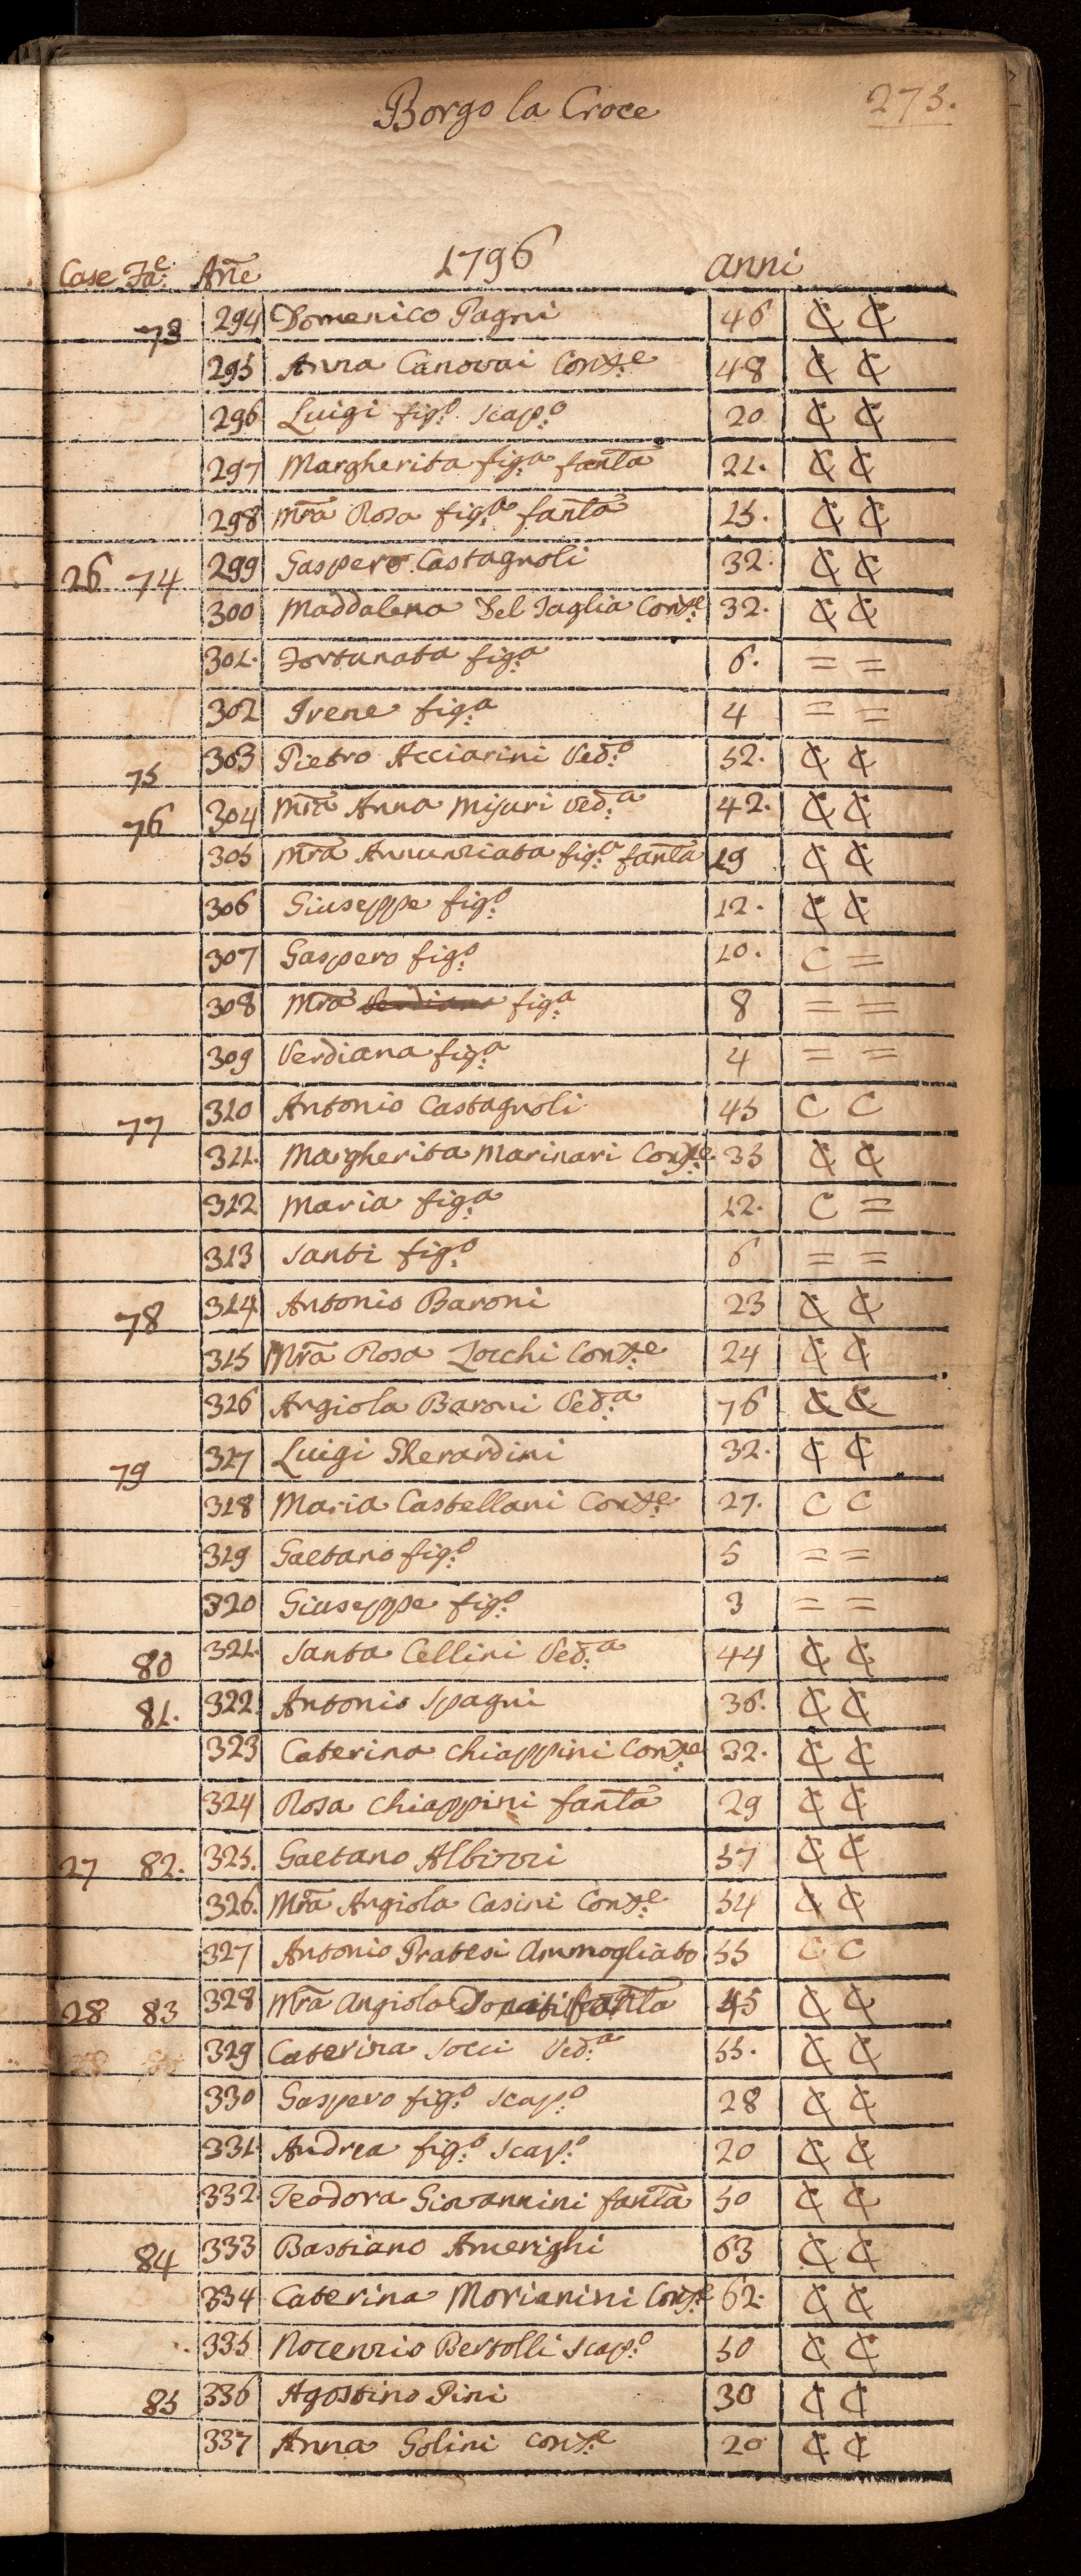 Borgo la Croce 273.
Case Fa:e Ane 1796 anni
73 294 Domenico Pagni 46 C C
295 Anna Canovai Conx:e 48 C C
296 Luigi fig:o scap:o 20 C C
297 Margherita fig:a fanta 21. C C
298 Mra Rosa fig:a fanta 15. C C
26 74 299 Gaspero Castagnoli 32. C C
300 Maddalena Del Taglia Conx:e 32. C C
301. Fortunata fig:a 6. = =
302 Irene fig:a 4 = =
75 303 Pietro Acciarini Ved:o 52. C C
76 304 Mra Anna Mijuri Ved:a 42. C C
305 Mra Annunziata fig:a fanta 19 C C
306 Giuseppe fig:o 12. C C
307 Gaspero fig:o 10. C =
308 Mra Verdiana fig:a 8 = =
309 Verdiana fig:a 4 = =
77 310 Antonio Castagnoli 45 C C
311. Margherita Marinari Conx:e 35 C C
312 Maria fig:a 12. C =
313 Santi fig:o 6 = =
78 314 Antonio Baroni 23 C C
315 Mra Rosa Zocchi Conx:e 24 C C
316 Angiola Baroni Ved:a 76 C C
79 317 Luigi Gherardini 32. C C
318 Maria Castellani Conx:e 27. C C
319 Gaetano fig:o 5 = =
320 Giuseppe fig:o 3 = =
80 321. Santa Cellini Ved:a 44 C C
81. 322. Antonio Spagni 36. C C
323 Caterina Chiappini Conx:e 32. C C
324 Rosa Chiappini fanta 29 C C
27 82. 325. Gaetano Albizzi 57 C C
326. Mra Angiola Casini Conx:e 54 C C
327 Antonio Pratesi Ammogliato 55 C C
28 83 328 Mra Angiola Donati fanta 45 C C
329 Caterina Socci Ved:a 55. C C
330 Gaspero fig:o scap:o 28 C C
331. Andrea fig:o scap:o 20 C C
332. Teodora Giovannini fanta 50 C C
84 333 Bastiano Amerighi 63 C C
334 Caterina Morianini Conx:e 62. C C
335 Nocenzio Bertolli scap:o 50 C C
85 336 Agostino Pini 30 C C
337 Anna Golini Conx:e 20 C C